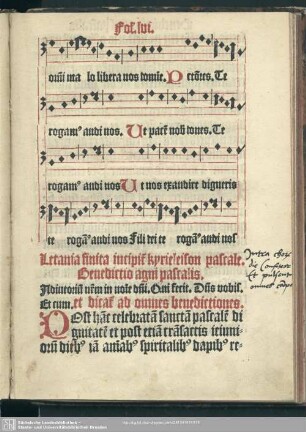 Fol. lvi.
om̄i ma lo libera nos domīe. Pctōres. Te
rogam⁹ audi nos. Ut pacē nob̄ dones. Te
rogam⁹ audi nos Ut nos exaudire digneris
te rogam⁹ audi nos Fili dei te rogam⁹ audi nos
Letania finita incipit̄ kyrieleison pascale.
Benedictio agni pascalis.
Adiutoriū nr̄m in noīe dn̄i. Qui fecit. Dn̄s vobis.
Et cum. et dicat̄ ad omnes benedictiones.
Post hanc celebratā sanctā pascalē di
gnitatē et post etiā trāsactis ieiuni
orū dieb⁹ iā amab⁹ spiritalib⁹ dapib⁹ re⸗